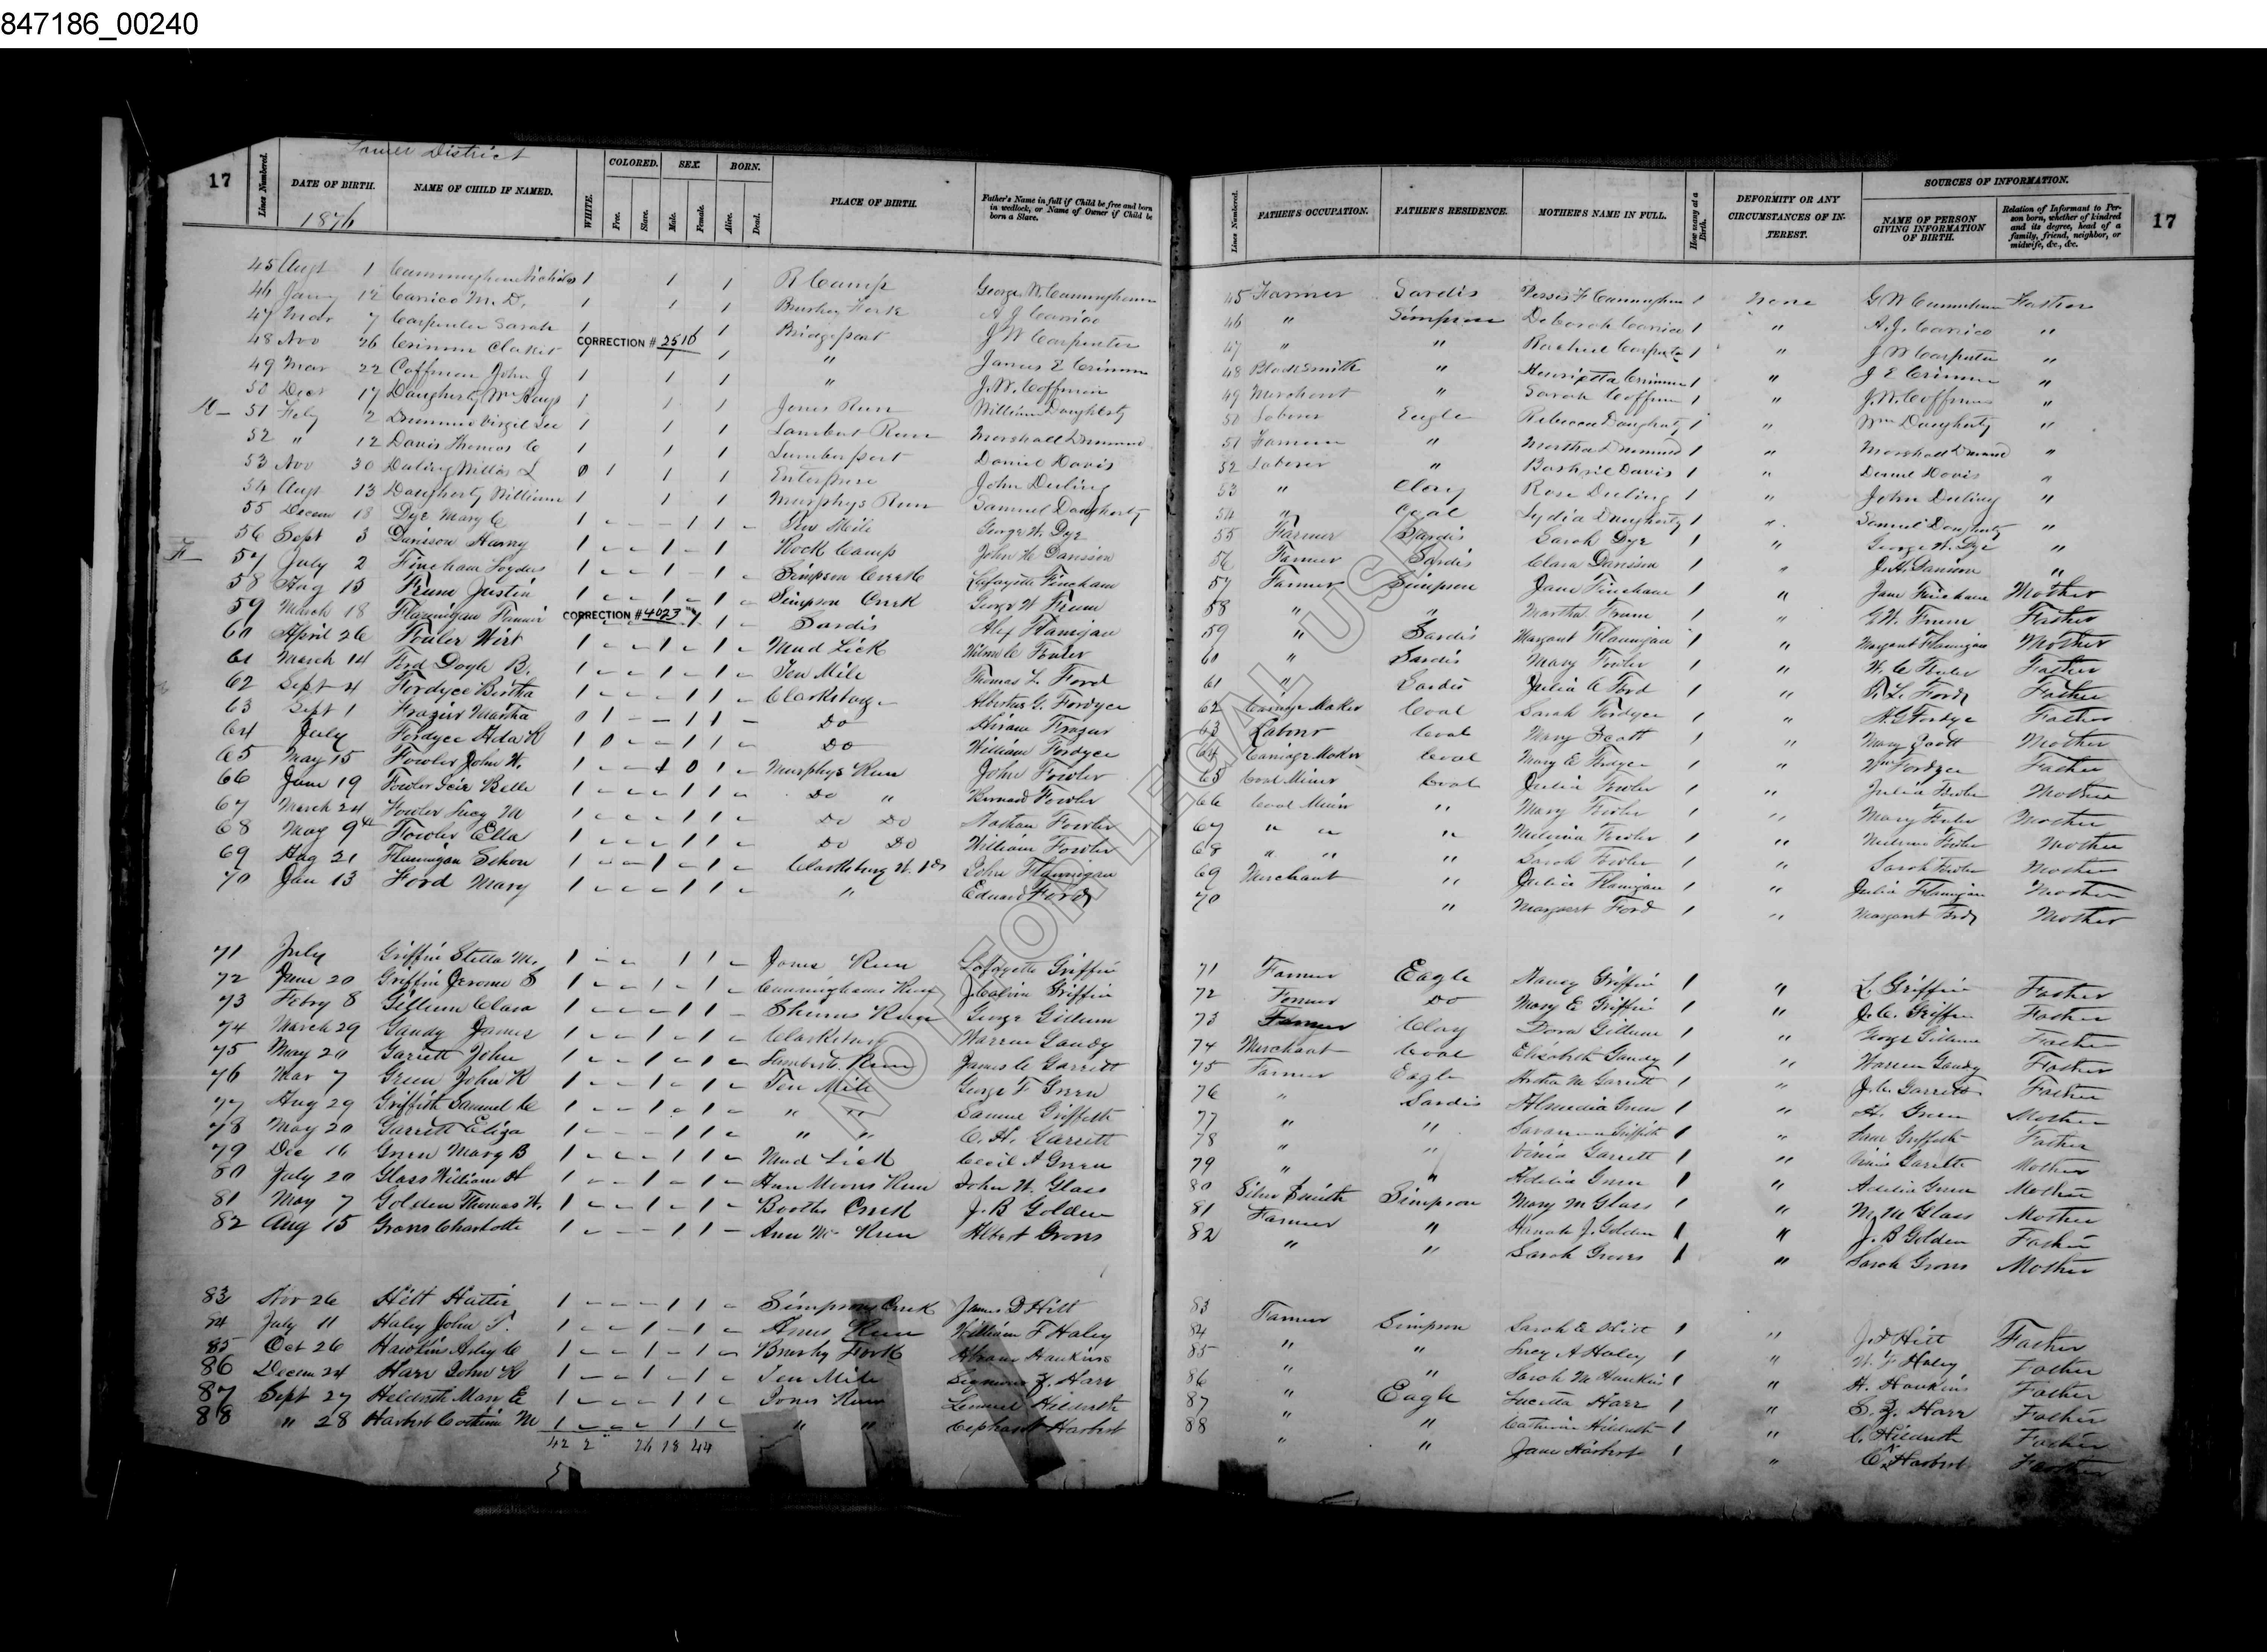 847186_00240
Lower District
17
Lines Numbered.
DATE OF BIRTH.
NAME OF CHILD IF NAMED.
WHITE.
COLORED.
Free.
Slave.
SEX.
Male.
Female.
BORN.
Alive.
Dead.
PLACE OF BIRTH.
Father's Name in full if Child be free and born in wedlock, or Name of Owner if Child be born a Slave.
1876
Lines Numbered.
FATHER'S OCCUPATION.
FATHER'S RESIDENCE.
MOTHER'S NAME IN FULL.
How many at a Birth.
DEFORMITY OR ANY CIRCUMSTANCES OF INTEREST.
SOURCES OF INFORMATION.
NAME OF PERSON GIVING INFORMATION OF BIRTH.
Relation of Informant to Person born, whether of kindred and its degree, head of a family, friend, neighbor, or midwife, &c., &c.
17
45 Augt 1 1 1 1 R Camp George W. Cunningham 45 Farmer Sardis 1 None Father
46 Jany 12 Carrico M. D. 1 1 1 Brushy Fork A J Carrico 46 " Simpson Deborah Carrico 1 " A. J. Carrico "
47 Mar 7 Carpenter Sarah 1 1 Bridgeport J W Carpenter 47 " " Rachael Carpenter 1 " J W Carpenter "
CORRECTION # 2516
48 Nov 26 1 " James E Crimm 48 Blacksmith " Henrietta Crimm 1 " J E Crimm "
49 Mar 22 Coffman John J 1 1 1 " J. W. Coffman 49 Merchant " Sarah Coffman 1 " J. W. Coffman "
50 Decr 17 Daugherty Wm 1 1 1 Jones Run William Daugherty 50 Laborer Eagle Rebecca Daugherty 1 " Wm Daugherty "
51 Feby 2 Virgil Lee 1 1 1 Lambert Run Marshall 51 Farmer " Martha 1 " Marshall "
52 " 12 Davis Thomas C 1 1 1 Lumberport Daniel Davis 52 Laborer " Davis 1 " Daniel Davis "
53 Nov 30 Duling Willis L 0 1 1 1 Enterprise John Duling 53 " Clay Rose Duling 1 " John Duling "
54 Augt 13 Daugherty William 1 1 1 Murphys Run Samuel Daugherty 54 " Coal Lydia Daugherty 1 " Samuel Daugherty "
55 Decem 18 Dye Mary C 1 - - - 1 1 - Ten Mile George W. Dye 55 Farmer Sardis Sarah Dye 1 " George W. Dye "
56 Sept 3 Davisson Harry 1 - - 1 - 1 Rock Camp 56 Farmer Sardis Clara 1 " "
57 July 2 Fincham 1 - - 1 - 1 - Simpson Creek Lafayette Fincham 57 Farmer Simpson Jane Fincham 1 " Jane Fincham Mother
58 Aug 15 Frum Justin 1 - - 1 - 1 - Simpson Creek George W Frum 58 " " Martha Frum 1 " G W. Frum Father
59 March 18 Flannigan CORRECTION # 4023 1 - Sardis Alex Flanigan 59 " Sardis Margaret Flannigan 1 " Margaret Flannigan Mother
60 April 26 Fowler Wirt 1 - - 1 - 1 - Mud Lick Fowler 60 " Sardis Mary Fowler 1 " W. C. Fowler Father
61 March 14 Ford Doyle B. 1 - - 1 - 1 - Ten Mile Thomas L. Ford 61 " Sardis Julia A Ford 1 " T. L. Ford Father
62 Sept 4 Fordyce Bertha 1 - - - 1 1 - Clarksburg Albertus G. Fordyce 62 Carriage Maker Coal Sarah Fordyce 1 " A. G Fordyce Father
63 Sept 1 Frazier Martha 0 1 - - 1 1 - Do Hiram Frazier 63 Labor Coal Mary Scott 1 " Mary Scott Mother
64 July Fordyce Ada K 1 0 - - 1 1 - Do William Fordyce 64 Carriage Maker Coal Mary E Fordyce 1 " Wm Fordyce Father
65 May 15 Fowler John W. 1 - - 1 0 1 - Murphys Run John Fowler 65 Coal Miner Coal Julia Fowler 1 " Julia Fowler Mother
66 June 19 Fowler Belle 1 - - - 1 1 - Do " Bernard Fowler 66 Coal Miner " Mary Fowler 1 " Mary Fowler Mother
67 March 24 Fowler Lucy M 1 - - - 1 1 - Do Do Nathan Fowler 67 " " " Fowler 1 " Fowler Mother
68 May 9th Fowler Ella 1 - - - 1 1 - Do Do William Fowler 68 " " " Sarah Fowler 1 " Sarah Fowler Mother
69 Aug 21 Flannigan 1 - - 1 - 1 - Clarksburg W. Va John Flannigan 69 Merchant " Julia Flanigan 1 " Julia Flannigan Mother
70 Jan 13 Ford Mary 1 - - - 1 1 - " Edward Ford 70 " Margaret Ford 1 " Margaret Ford Mother
71 July Griffin Stella M. 1 - - 1 1 - Jones Run Lafayette Griffin 71 Farmer Eagle Nancy Griffin 1 " L. Griffin Father
72 June 20 Griffin Jerome S 1 - - 1 - 1 - Cunninghams Run J. Calvin Griffin 72 Farmer Do Mary E Griffin 1 " J. C. Griffin Father
73 Febry 8 Gillum Clara 1 - - - 1 1 - Shinns Run George Gillum 73 Farmer Clay Dora Gillum 1 " George Gillum Father
74 March 29 Gandy James 1 - - 1 - 1 - Clarksburg Warren Gandy 74 Merchant Coal Elizabeth Gandy 1 " Warren Gandy Father
75 May 20 Garrett John 1 - - 1 - 1 - Lamberts Run James C Garrett 75 Farmer Eagle M Garrett 1 " J. C. Garrett Father
76 Mar 7 Green John K 1 - - 1 - 1 - Ten Mile George F Green 76 " Sardis Almedia Green 1 " A. Green Mother
77 Aug 29 Griffith Samuel C 1 - - 1 - 1 - " " Samuel Griffith 77 " " Griffith 1 " Saml Griffith Father
78 May 20 Garrett Eliza 1 - - - 1 1 - " " C. H. Garrett 78 " " Garrett 1 " Garrett Mother
79 Dec 16 Green Mary B 1 - - - 1 1 - Mud Lick Cecil A Green 79 " " Adelia Green 1 " Adelia Green Mother
80 July 20 Glass William H 1 - - 1 - 1 - Ann Moores Run John W. Glass 80 Silver Smith Simpson Mary M Glass 1 " M. M Glass Mother
81 May 7 Golden Thomas W. 1 - - 1 - 1 - Booths Creek J. B Golden 81 Farmer " Hannah J. Golden 1 " J. B Golden Father
82 Aug 15 Groves Charlotte 1 - - - 1 1 - Ann Mc Run Albert Groves 82 " " Sarah Groves 1 " Sarah Groves Mother
83 Nov 26 Hitt Hattie 1 - - - 1 1 - Simpsons Creek James D Hitt 83 Farmer Simpson Sarah E Hitt 1 " J. D Hitt Father
84 July 11 Haley John T. 1 - - 1 - 1 - Run William F Haley 84 " " Lucy A Haley 1 " W. F Haley Father
85 Oct 26 Hawkins 1 - - 1 - 1 - Brushy Fork Hawkins 85 " " Sarah M Hawkins 1 " H. Hawkins Father
86 Decem 24 Harr John R 1 - - 1 - 1 - Ten Mile Harr 86 " Eagle Lucetta Harr 1 " S. Z. Harr Father
87 Sept 27 Hildreth Mary E 1 - - - 1 1 - Jones Run Hildreth 87 " " Catherine Hildreth 1 " Hildreth Father
88 " 28 Harbert M 1 - - - 1 1 - " " Cephas Harbert 88 " " Jane Harbert 1 " C. Harbert Father
42 2 26 18 44
NOT FOR LEGAL USE